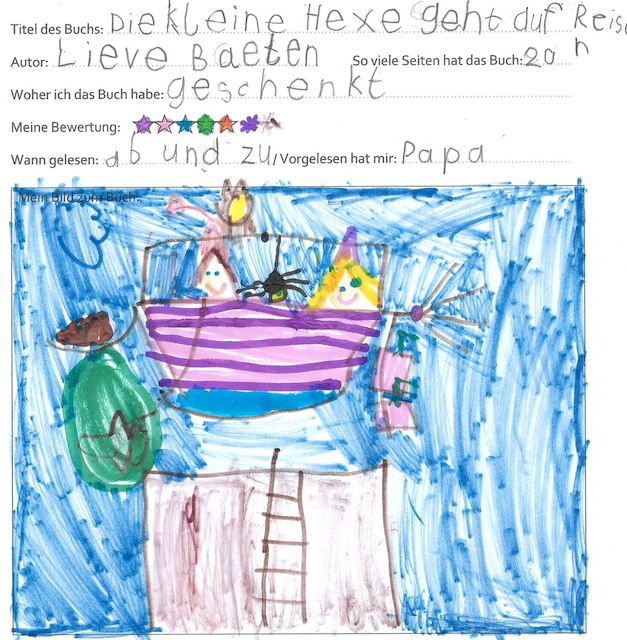 Titel des Buchs: Die kleine Hexe geht auf Reise
n
Autor: Lieve Baeten So viele Seiten hat das Buch: 20
Woher ich das Buch habe: geschenkt
Meine Bewertung:
Wann gelesen: ab und zu / Vorgelesen hat mir: Papa
Mein Bild zum Buch: